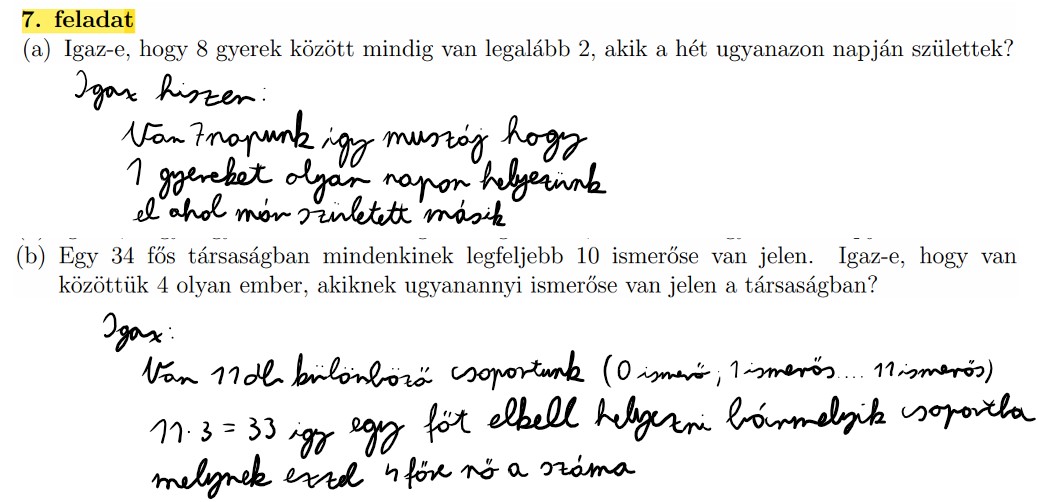 7. feladat
(a) Igaz-e, hogy 8 gyerek között mindig van legalább 2, akik a hét ugyanazon napján születtek?
Igaz hiszen:
Van 7 napunk így muszáj hogy
1 gyereket olyan napon helyezünk
el ahol már született másik
(b) Egy 34 fős társaságban mindenkinek legfeljebb 10 ismerőse van jelen. Igaz-e, hogy van
közöttük 4 olyan ember, akiknek ugyanannyi ismerőse van jelen a társaságban?
Igaz:
Van 11 db különböző csoportunk (0 ismerő, 1 ismerős... 11 ismerős)
11·3=33 így egy főt elkell helyezni bármelyik csoportba
melynek ezzel 4 főre nő a száma